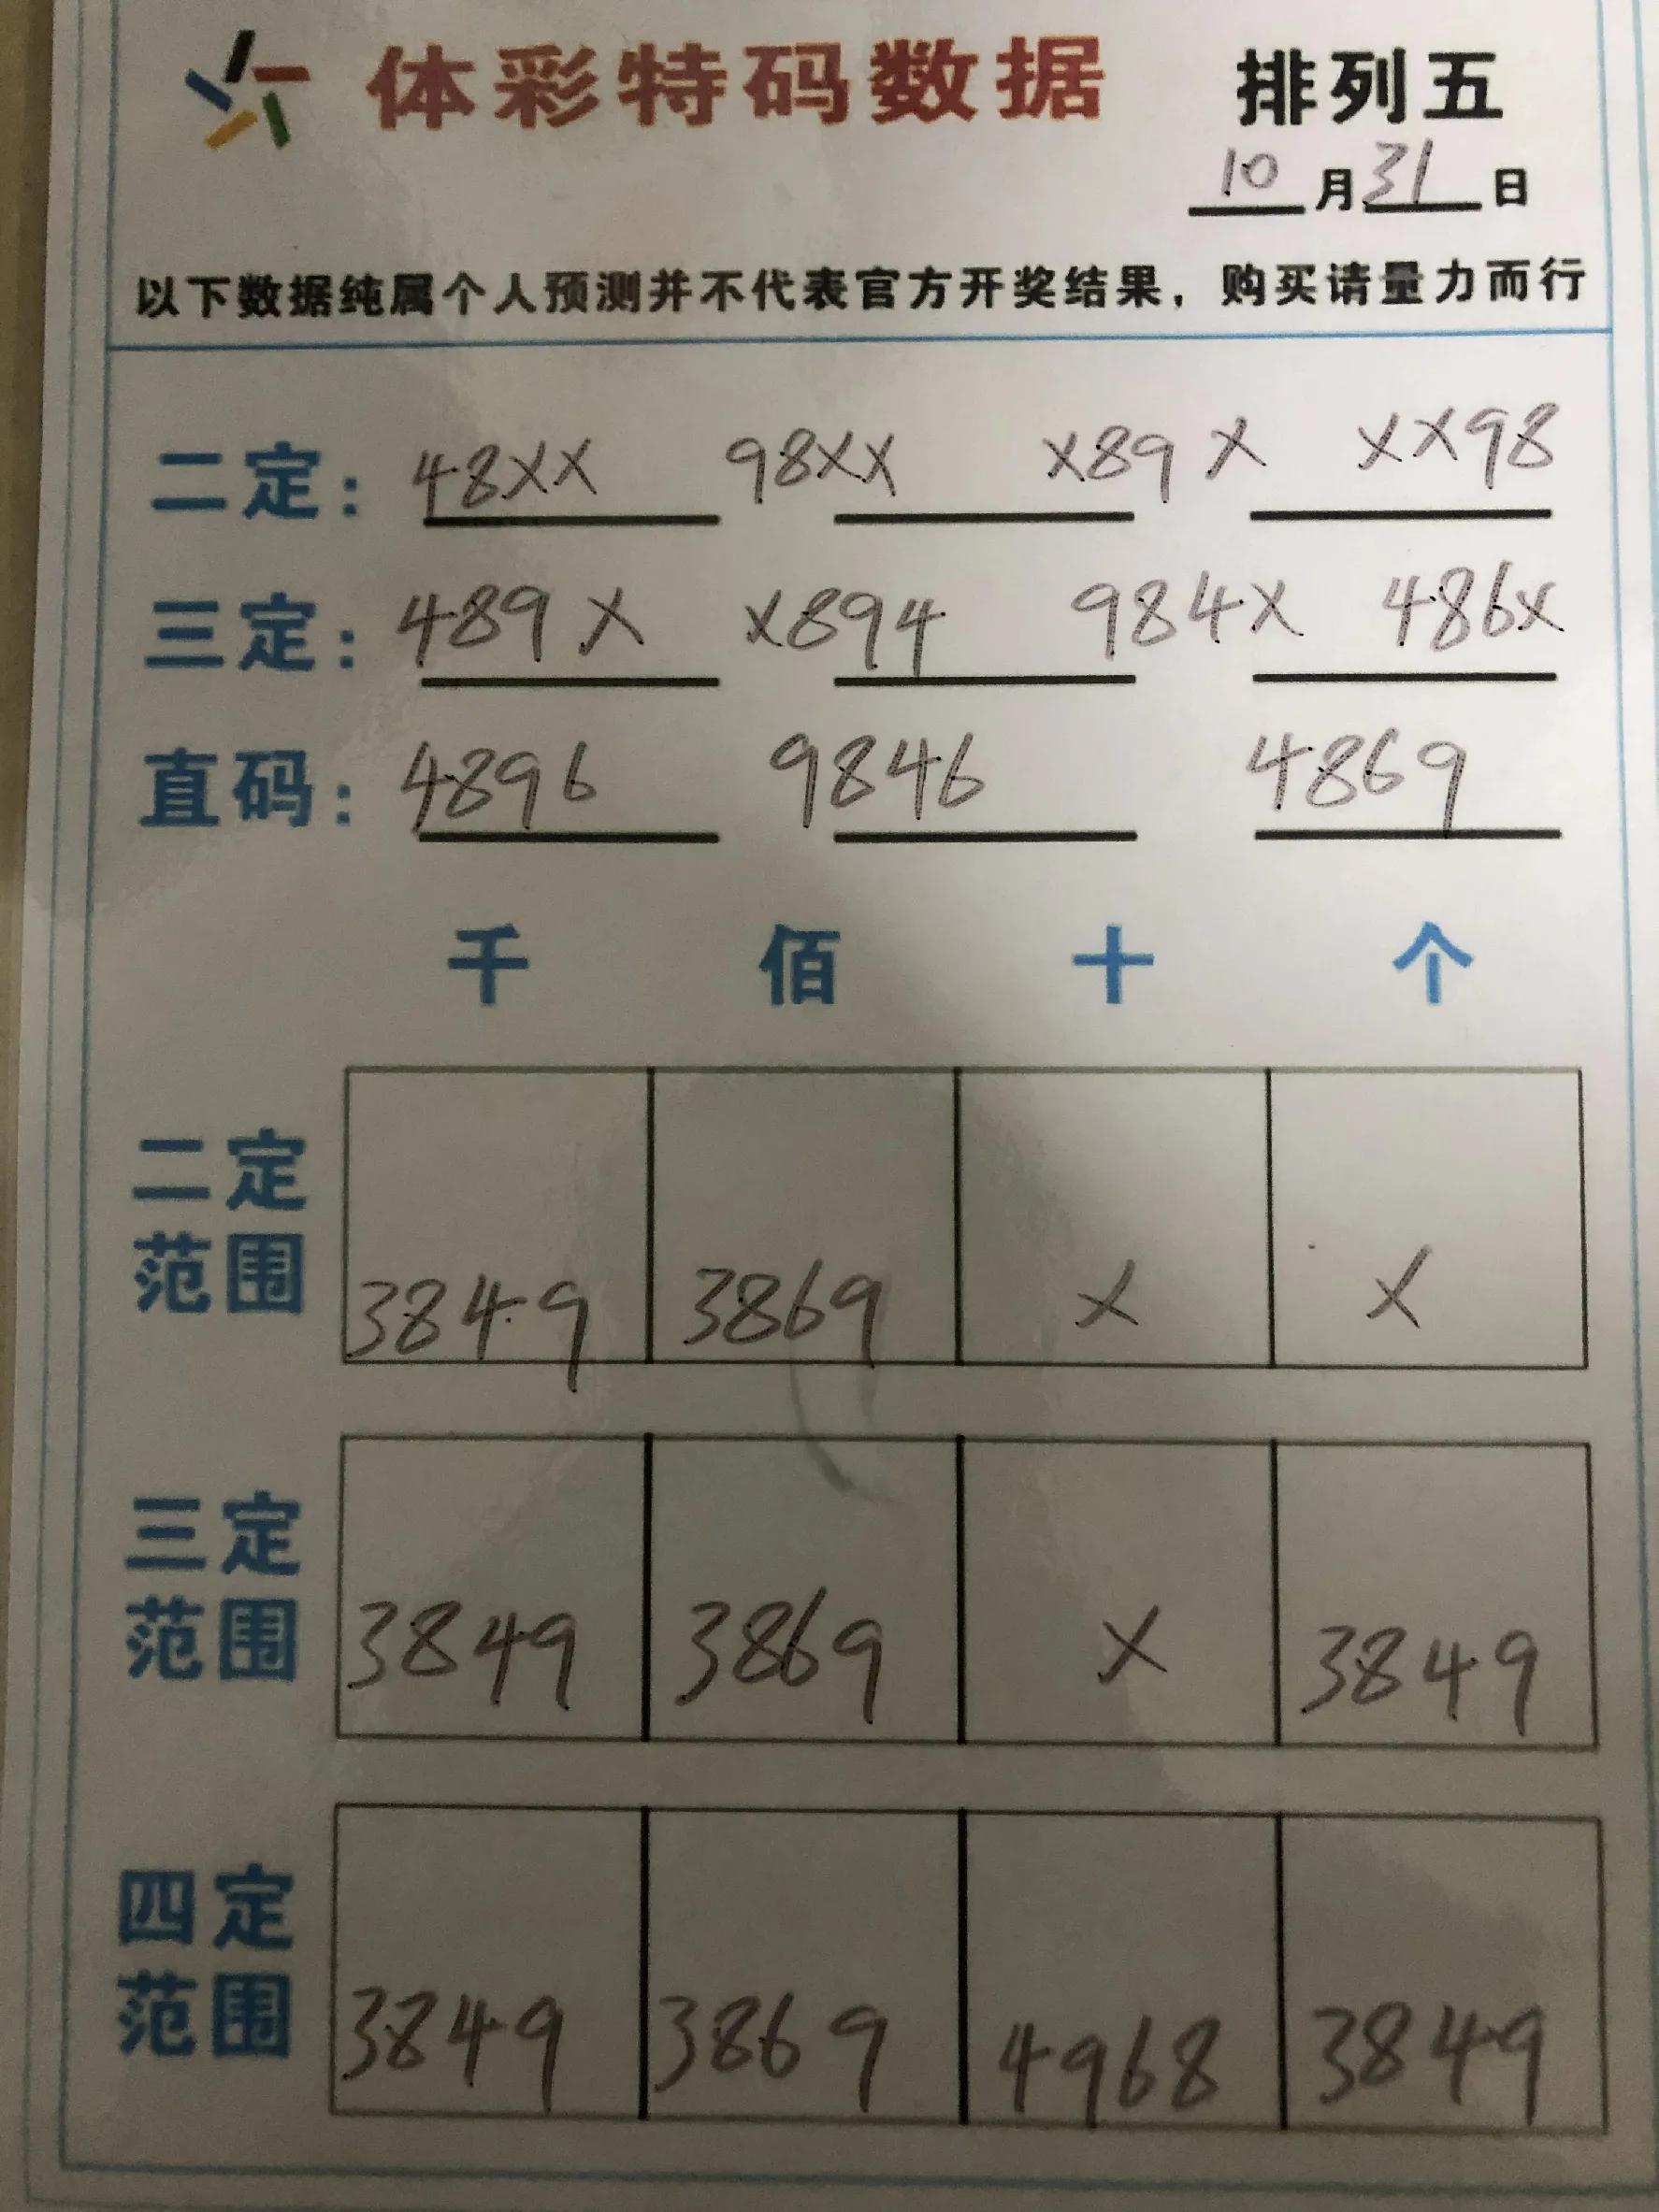 体彩特码数据 排列五
10月31日
以下数据纯属个人预测并不代表官方开奖结果，购买请量力而行
二定：48XX 98XX X89X XX98
三定：489X X894 984X 486X
直码：4896 9846 4869
千 佰 十 个
二定范围 3849 3869 X X
三定范围 3849 3869 X 3849
四定范围 3849 3869 4968 3849